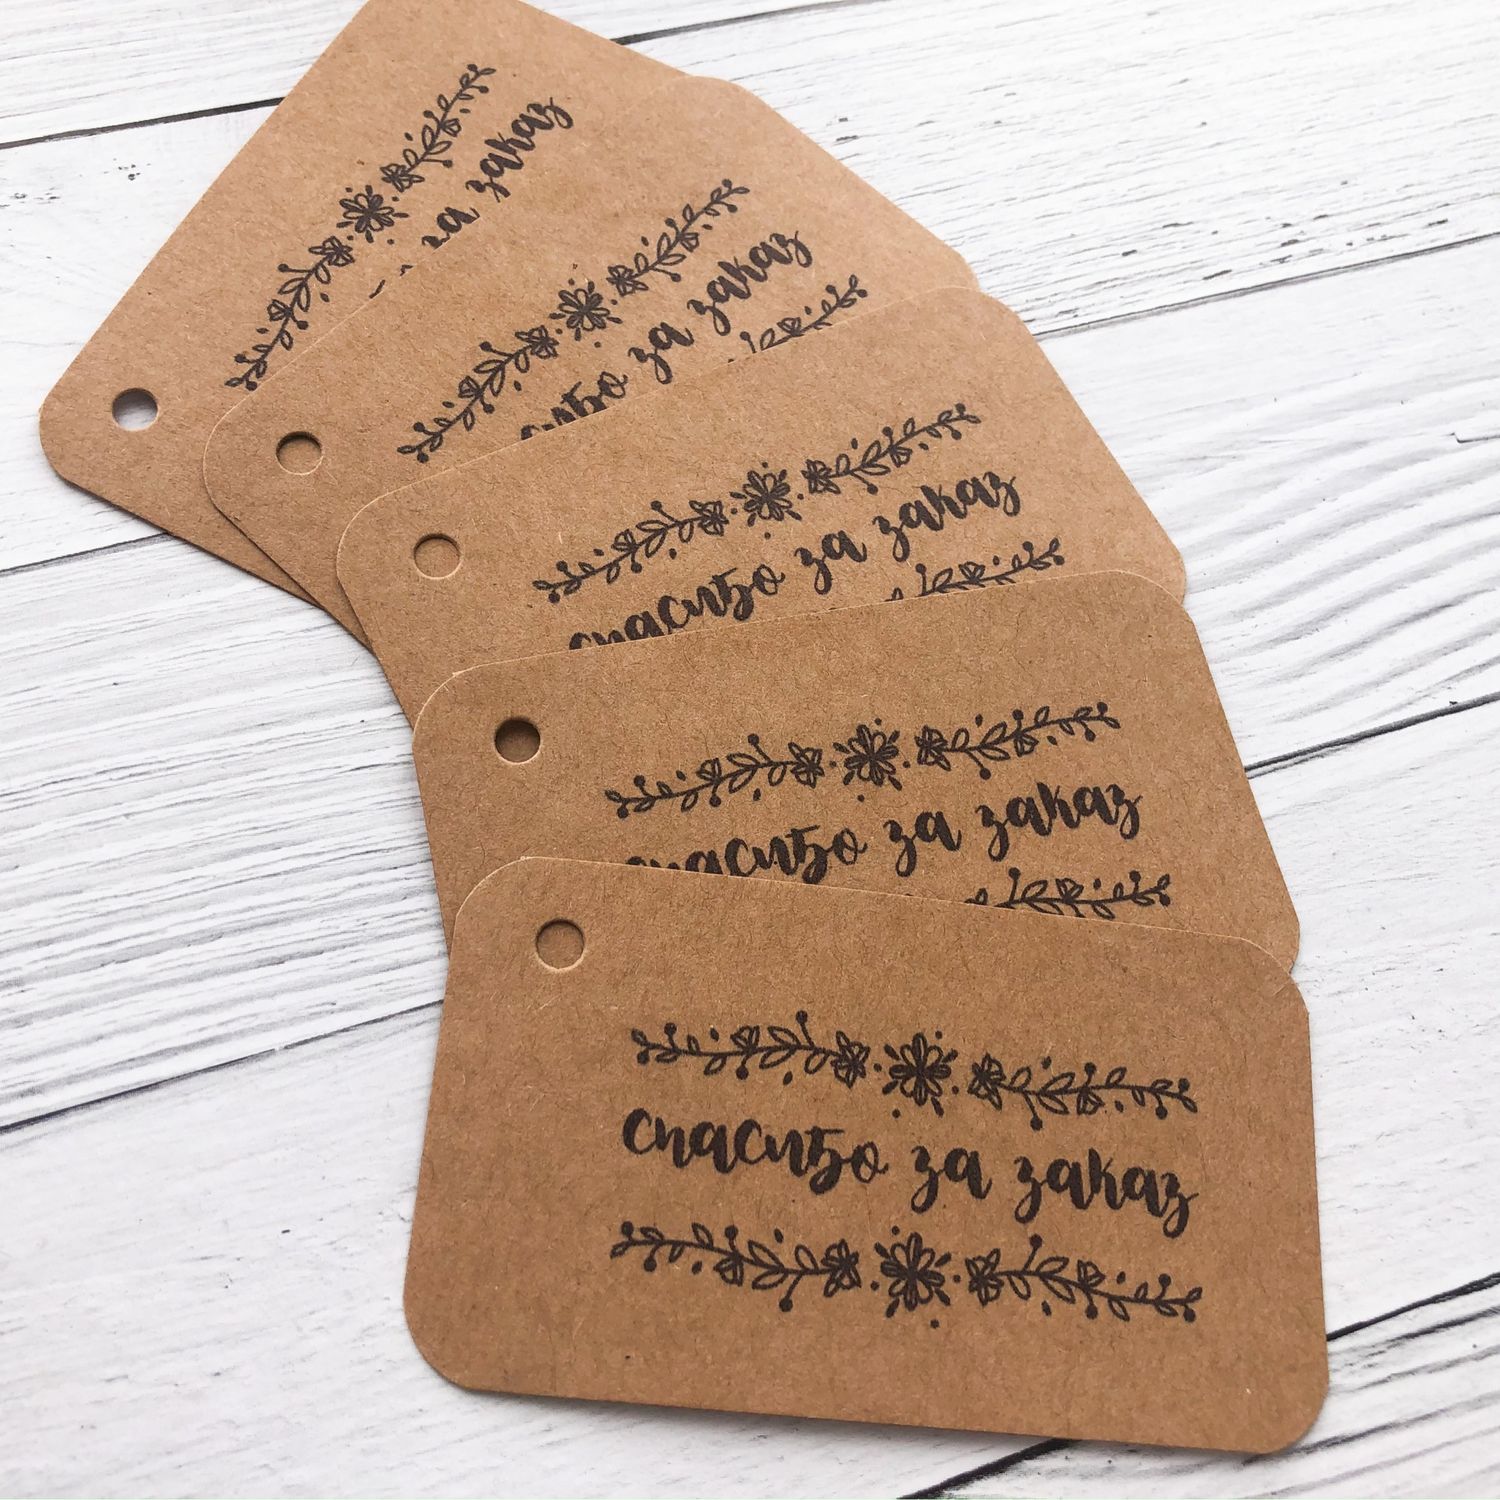 за заказ
спасибо за заказ
спасибо за заказ
спасибо за заказ
спасибо за заказ